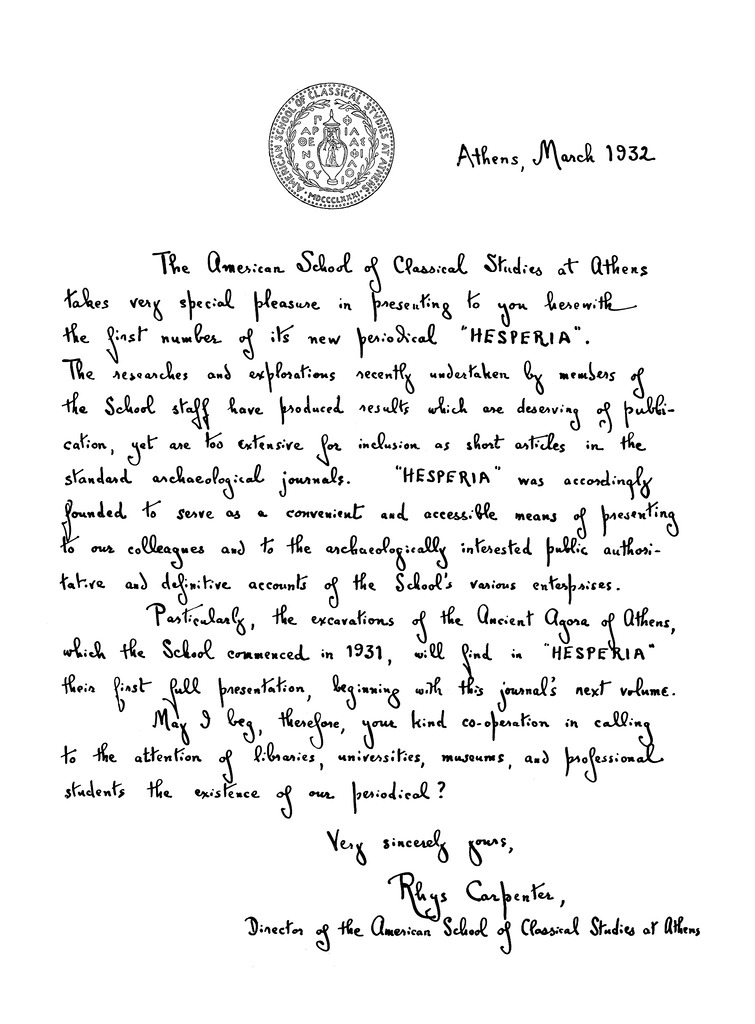 AMERICAN SCHOOL OF CLASSICAL STUDIES AT ATHENS
MDCCCLXXXI
ΠΑΡΘΕΝΟΥ ΦΙΛΑΣ ΦΙΛΟΙ
Athens, March 1932
The American School of Classical Studies at Athens
takes very special pleasure in presenting to you herewith
the first number of its new periodical "HESPERIA".
The researches and explorations recently undertaken by members of
the School staff have produced results which are deserving of publi-
cation, yet are too extensive for inclusion as short articles in the
standard archaeological journals. "HESPERIA" was accordingly
founded to serve as a convenient and accessible means of presenting
to our colleagues and to the archaeologically interested public authori-
tative and definitive accounts of the School's various enterprises.
Particularly, the excavations of the Ancient Agora of Athens,
which the School commenced in 1931, will find in "HESPERIA"
their first full presentation, beginning with this journal's next volume.
May I beg, therefore, your kind co-operation in calling
to the attention of libraries, universities, museums, and professional
students the existence of our periodical?
Very sincerely yours,
Rhys Carpenter,
Director of the American School of Classical Studies at Athens